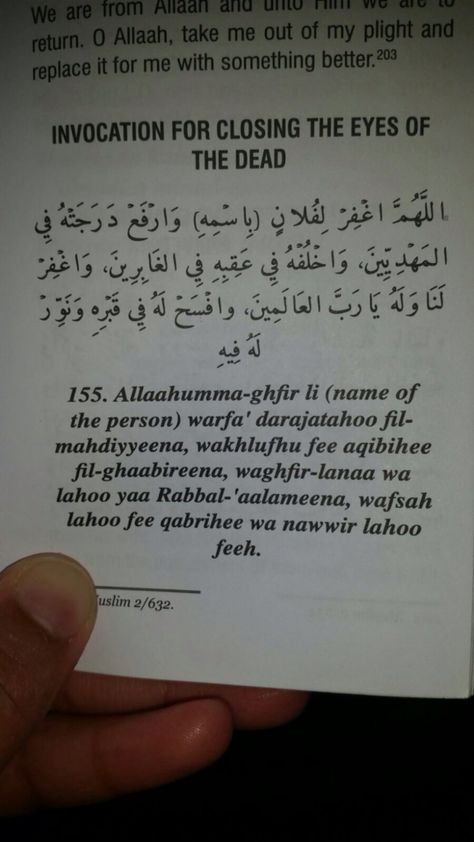 We are from Allaah and unto Him we are to
return. O Allaah, take me out of my plight and
replace it for me with something better.203
INVOCATION FOR CLOSING THE EYES OF
THE DEAD
اللَّهُمَّ اغْفِرْ لِفُلَانٍ (بِاسْمِهِ) وَارْفَعْ دَرَجَتَهُ فِي
المَهْدِيِّينَ، وَاخْلُفْهُ فِي عَقِبِهِ فِي الغَابِرِينَ، وَاغْفِرْ
لَنَا وَلَهُ يَا رَبَّ العَالَمِينَ، وافْسَحْ لَهُ فِي قَبْرِهِ وَنَوِّرْ
لَهُ فِيهِ
155. Allaahumma-ghfir li (name of
the person) warfa' darajatahoo fil-
mahdiyyeena, wakhlufhu fee aqibihee
fil-ghaabireena, waghfir-lanaa wa
lahoo yaa Rabbal-'aalameena, wafsah
lahoo fee qabrihee wa nawwir lahoo
feeh.
uslim 2/632.